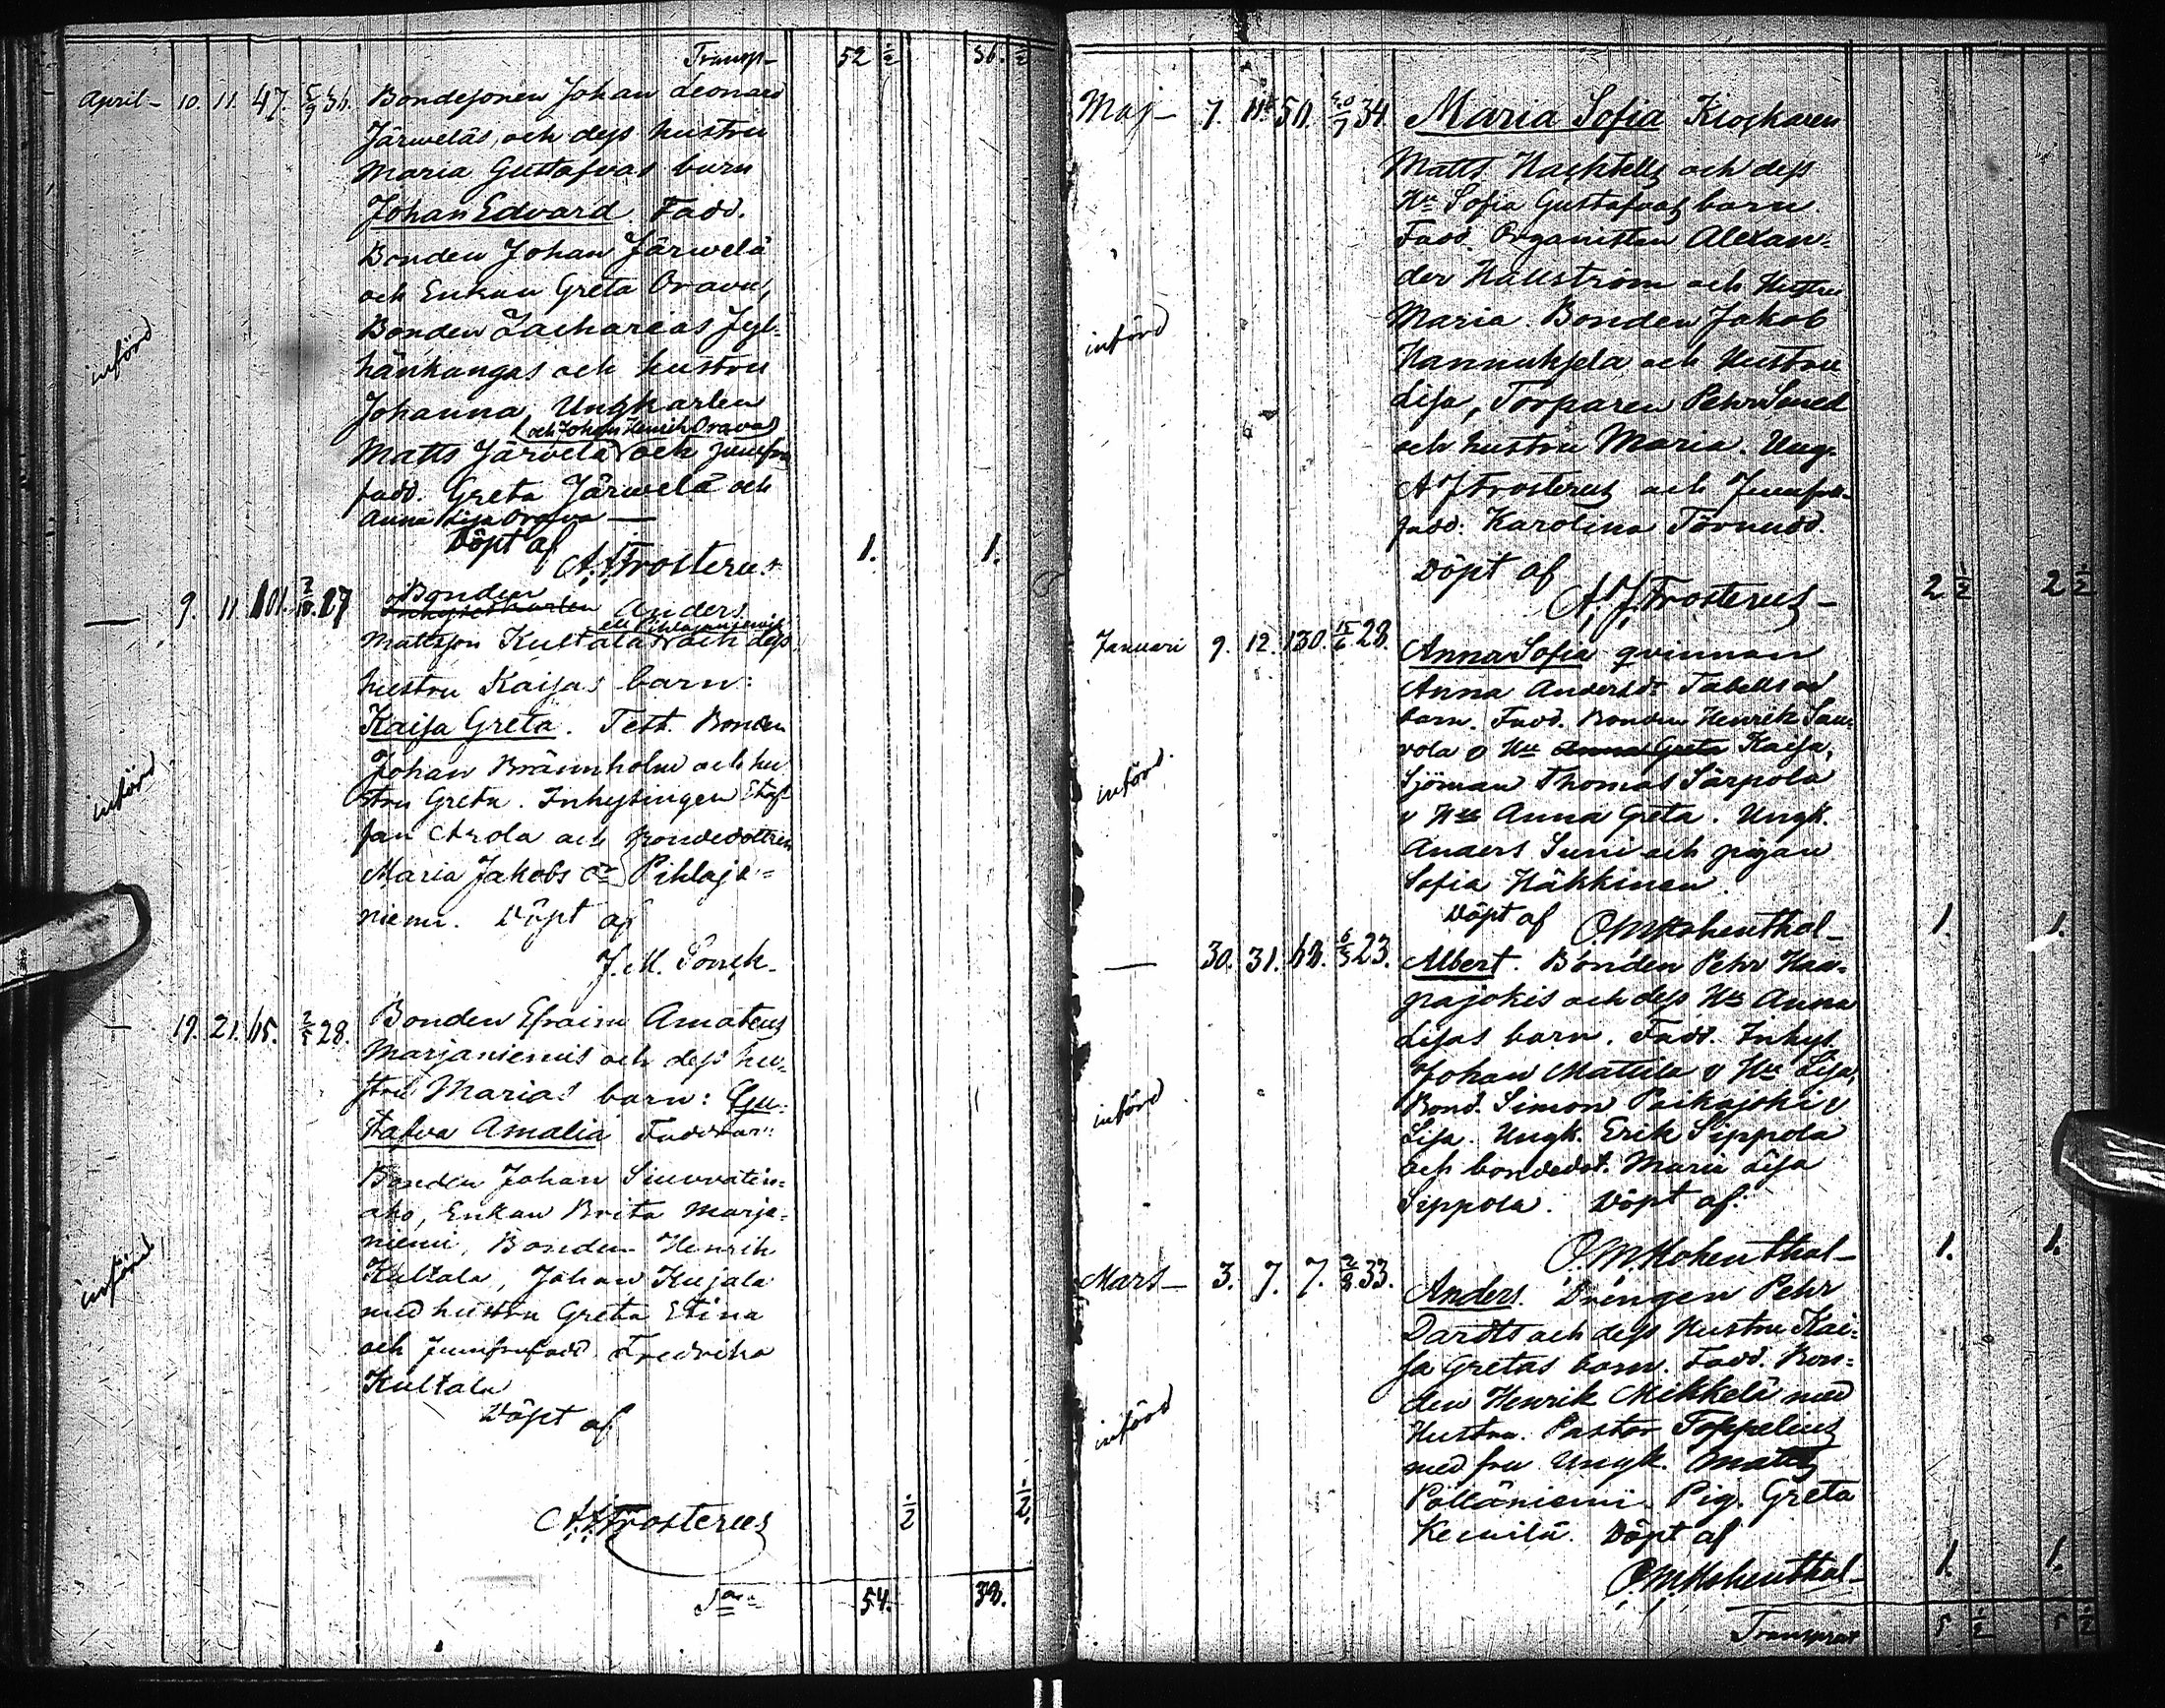 Transp- 52 ½ 36. ½
April- 10. 11. 47. 5/9 36. Bondesonen Johan Leonard
Järweläs, och dess hustru
Maria Gustafvas barn
Johan Edvard. Fadd.
Bonden Johan Järwelä
och Enkan Greta Orava,
Bonden Zacharias Jyl-
hänkangas och hustru
införd
Johanna, Ungkarlen
och Johan Henrik Orava
Matts Järvelä och jumfru
fadd. Greta Järwelä och
Anna Lisa Orava —
Döpt af
A. J. Frosterus 1. 1.
— 9. 11. 101. 2/10. 27 Bonden
Anders
Mattsson Kultala och dess
hustru Kaisas barn:
Kaisa Greta. Test. Bonden
Johan Brännholm och hu
stru Greta. Inhysingen Staf-
införd
fan Arola och bondedottren
Maria Jakobs dr Pihlaja-
niemi. Döpt af
J. M.
— 19. 21. 65. 2/5 28. Bonden Efraim Amatus
Marjaniemis och dess hu-
stru Marias barn: Gu-
stafva Amalia Faddrar:
Bonden Johan
aho, Enkan Brita Marja-
niemi, Bonden Henrik
Kultala, Johan Kujala
införd
med hustru Greta Stina
och Jumfrufadd. Fredrika
Kultala
Döpt af
A. J. Frosterus ½ ½
Sa 54. 38.
Maj- 7. 11. 50. 34. Maria Sofia Kyrkkaren
Matts och dess
Hu Sofia Gustafvas barn.
Fadd. Organisten Alexan-
der Hällström och Hustru
Maria. Bonden Jakob
införd
Hannuksela och Hustru
Lisa, Torparen Pehr
och hustru Maria. Ung.
A J Frosterus och Jumfru-
fadd. Karolina Törnudd.
Döpt af
A. J. Frosterus- 2 ½ 2 ½
Januari 9. 12. 130. 15/6 28. Anna Sofia qvinnan
Anna Andersdr
barn. Fadd. Bonden Henrik Sau-
vola o Hu Anna Greta Kaisa,
Sjöman Thomas Särpola
införd.
o Hu Anna Greta. Ungk.
Anders Suni och pigan
Sofia Häkkinen.
Döpt af O. M. Hohenthal- 1. 1.
— 30. 31. 68. 6/5 23. Albert. Bonden Pehr Haa-
pajokis och dess Hu Anna
Lisas barn. Fadd. Inhys.
Johan Mattila o Hu Lisa,
Bond. Simon Paikajoki o
införd
Lisa. Ungk. Erik Sippola
och bondedot. Maria Lisa
Sippola. Döpt af.
O. M. Hohenthal- 1. 1.
Mars- 3. 7. 7. 2/8. 33. Anders. Drängen Pehr
Dardts och dess Hustru Kai-
sa Gretas barn. Fadd. Bon-
den Henrik Mikkelä med
Hustru. Pastor Toppelius
införd
med fru Ungk. Matts
Pölläniemi. Pig. Greta
Kemilä. Döpt af
O. M. Hohenthal- 1. 1.
Transport 5 ½ 5 ½